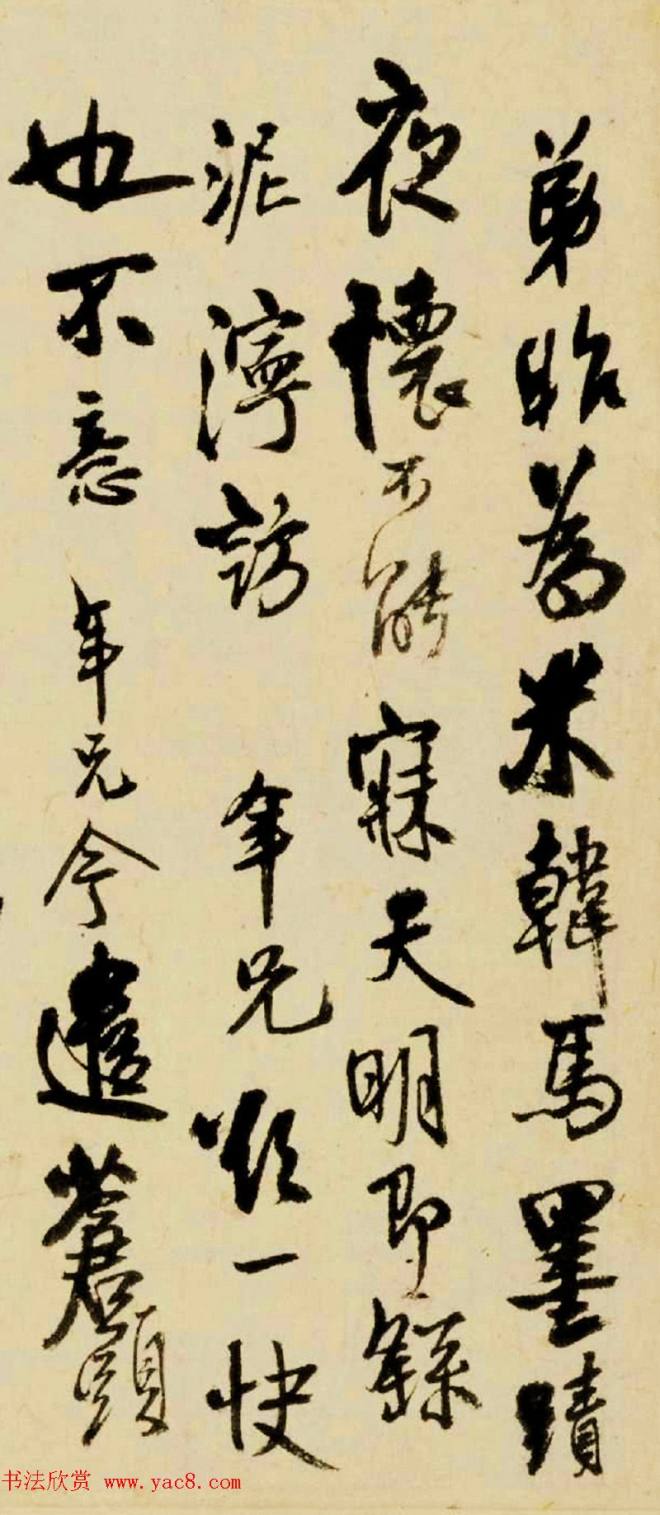 弟昨為米韓馬墨蹟
夜懷不能寐天明即
泥濘訪 年兄欲一快
也不意 年兄今遣蒼頭
书法欣赏 www.yac8.com